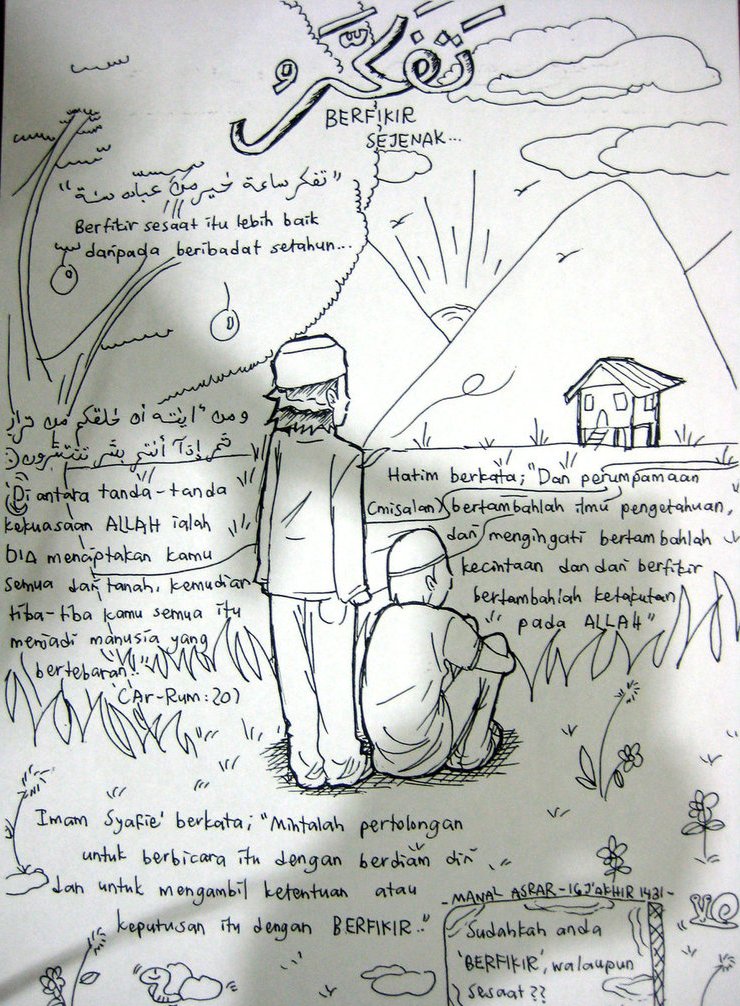 تفكّرو
BERFIKIR
SEJENAK...
"تفكر ساعة خير من عباده سنة"
Berfikir sesaat itu lebih baik
daripada beribadat setahun...
ومن ءايته أن خلقكم من تراب
ثم إذا أنتم بشر تنتشرون
"Di antara tanda-tanda
kekuasaan ALLAH ialah
DIA menciptakan kamu
semua dari tanah, kemudian
tiba-tiba kamu semua itu
menjadi manusia yang
bertebaran.."
(Ar-Rum:20)
Hatim berkata; "Dan perumpamaan
(misalan) bertambahlah ilmu pengetahuan,
dari mengingati bertambahlah
kecintaan dan dari berfikir
bertambahlah ketakutan
pada ALLAH"
Imam Syafie' berkata; "Mintalah pertolongan
untuk berbicara itu dengan berdiam diri
dan untuk mengambil ketentuan atau
keputusan itu dengan BERFIKIR.."
-MANAL ASRAR-16 J'AKHIR 1431-
Sudahkah anda
'BERFIKIR', walaupun
sesaat??